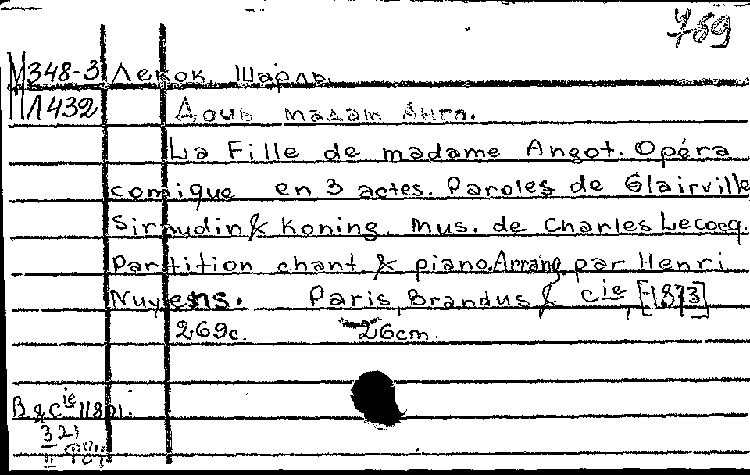 769
М348-3 Лекок, Шарль.
Л432 Дочь мадам Анго.
La Fille de madame Angot. Opéra
comique en 3 actes. Paroles de Clairville
Siraudin & Koning. Mus. de Charles Lecocq.
Partition chant & piano. Arrang par Henri
Nuyens. Paris, Brandus & Cie, [1873]
269c. 26cm.
B & Cie 11801.
321